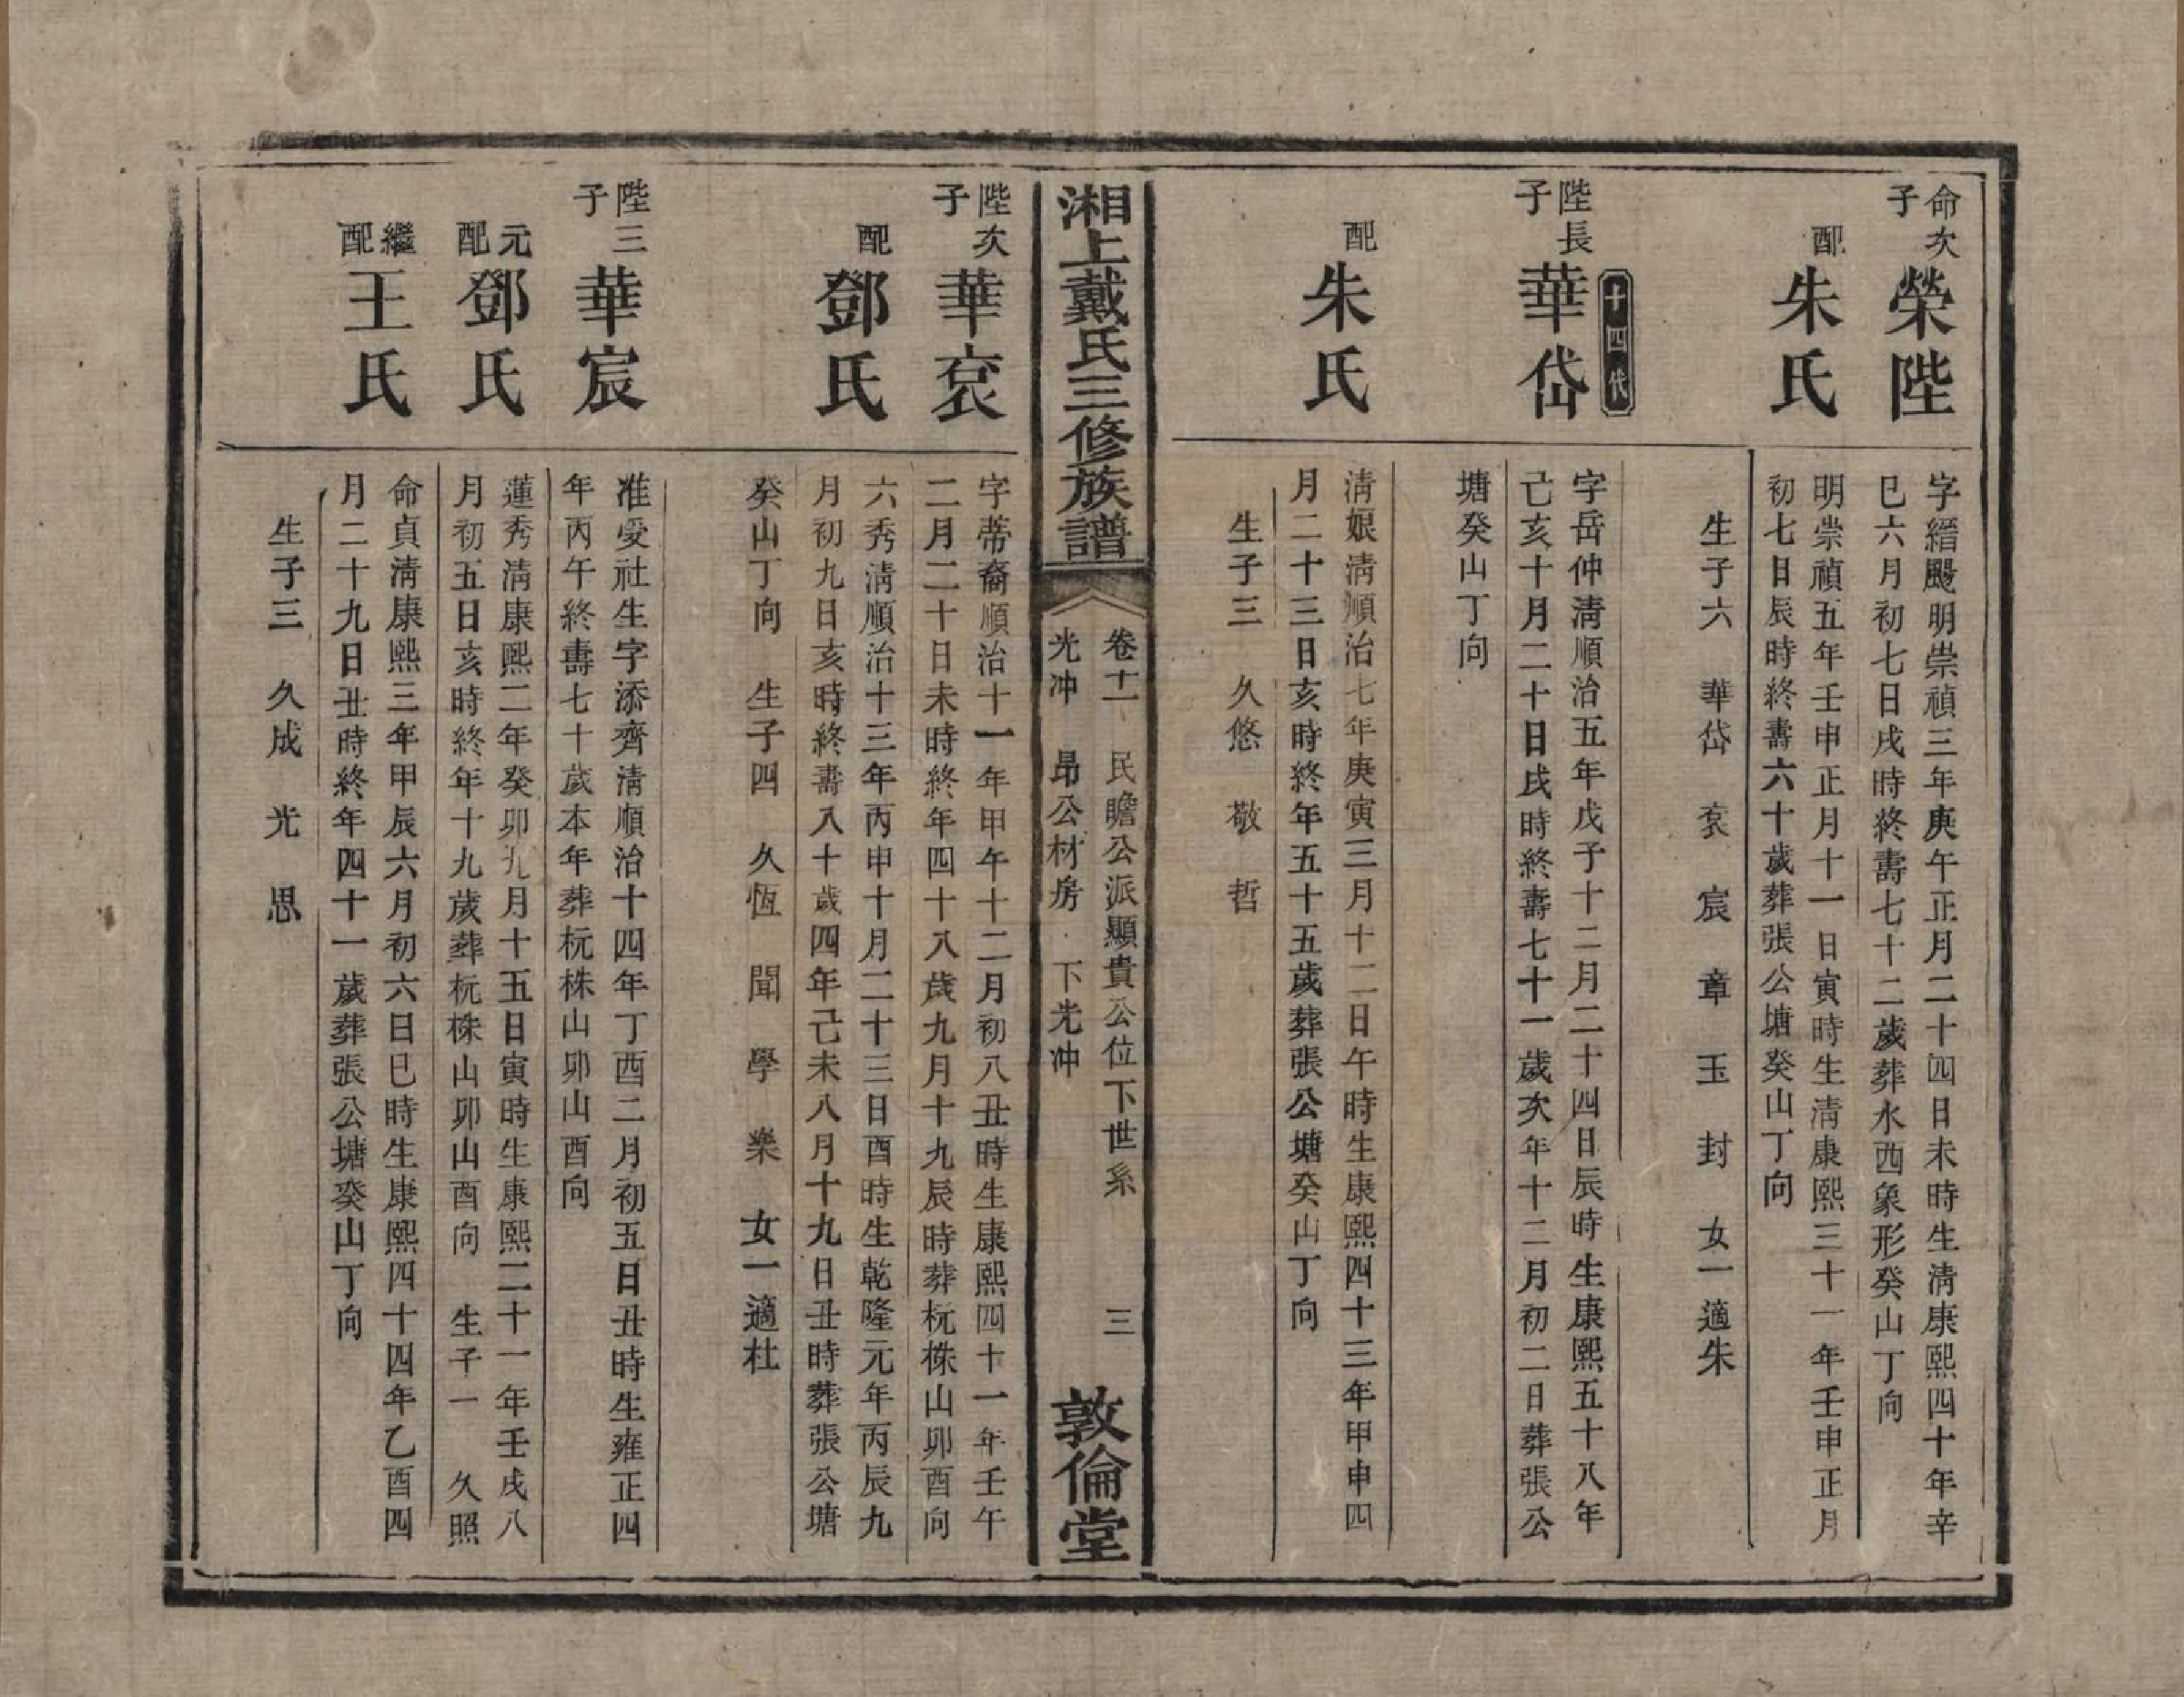 命次子
榮陛
字縉颺明崇禎三年庚午正月二十四日未時生清康熙四十年辛
巳六月初七日戌時終壽七十二歲葬水西象形癸山丁向
配
朱氏
明崇禎五年壬申正月十一日寅時生清康熙三十一年壬申正月
初七日辰時終壽六十歲葬張公塘癸山丁向
生子六 華岱 衮 宸 章 玉 封 女一適朱
十四代
陛長子
華岱
字岳仲清順治五年戊子十二月二十四日辰時生康熙五十八年
己亥十月二十日戌時終壽七十一歲次年十二月初二日葬張公
塘癸山丁向
配
朱氏
清娘清順治七年庚寅三月十二日午時生康熙四十三年甲申四
月二十三日亥時終年五十五歲葬張公塘癸山丁向
生子三 久悠 敬 哲
湘上戴氏三修族譜
卷十一 民瞻公派顯貴公位下世系 三
光冲 昂公材房 下光冲
敦倫堂
陛次子
華衮
字蒂裔順治十一年甲午十二月初八丑時生康熙四十一年壬午
二月二十日未時終年四十八歲九月十九辰時葬杬株山卯酉向
配
鄧氏
六秀清順治十三年丙申十月二十三日酉時生乾隆元年丙辰九
月初九日亥時終壽八十歲四年己未八月十九日丑時葬張公塘
癸山丁向 生子四 久恆 聞 學 樂 女一適杜
陛三子
華宸
准受社生字添齊清順治十四年丁酉二月初五日丑時生雍正四
年丙午終壽七十歲本年葬杬株山卯山酉向
元配
鄧氏
蓮秀清康熙二年癸卯九月十五日寅時生康熙二十一年壬戌八
月初五日亥時終年十九歲葬杬株山卯山酉向 生子一 久照
繼配
王氏
命貞清康熙三年甲辰六月初六日巳時生康熙四十四年乙酉四
月二十九日丑時終年四十一歲葬張公塘癸山丁向
生子三 久成 光 思